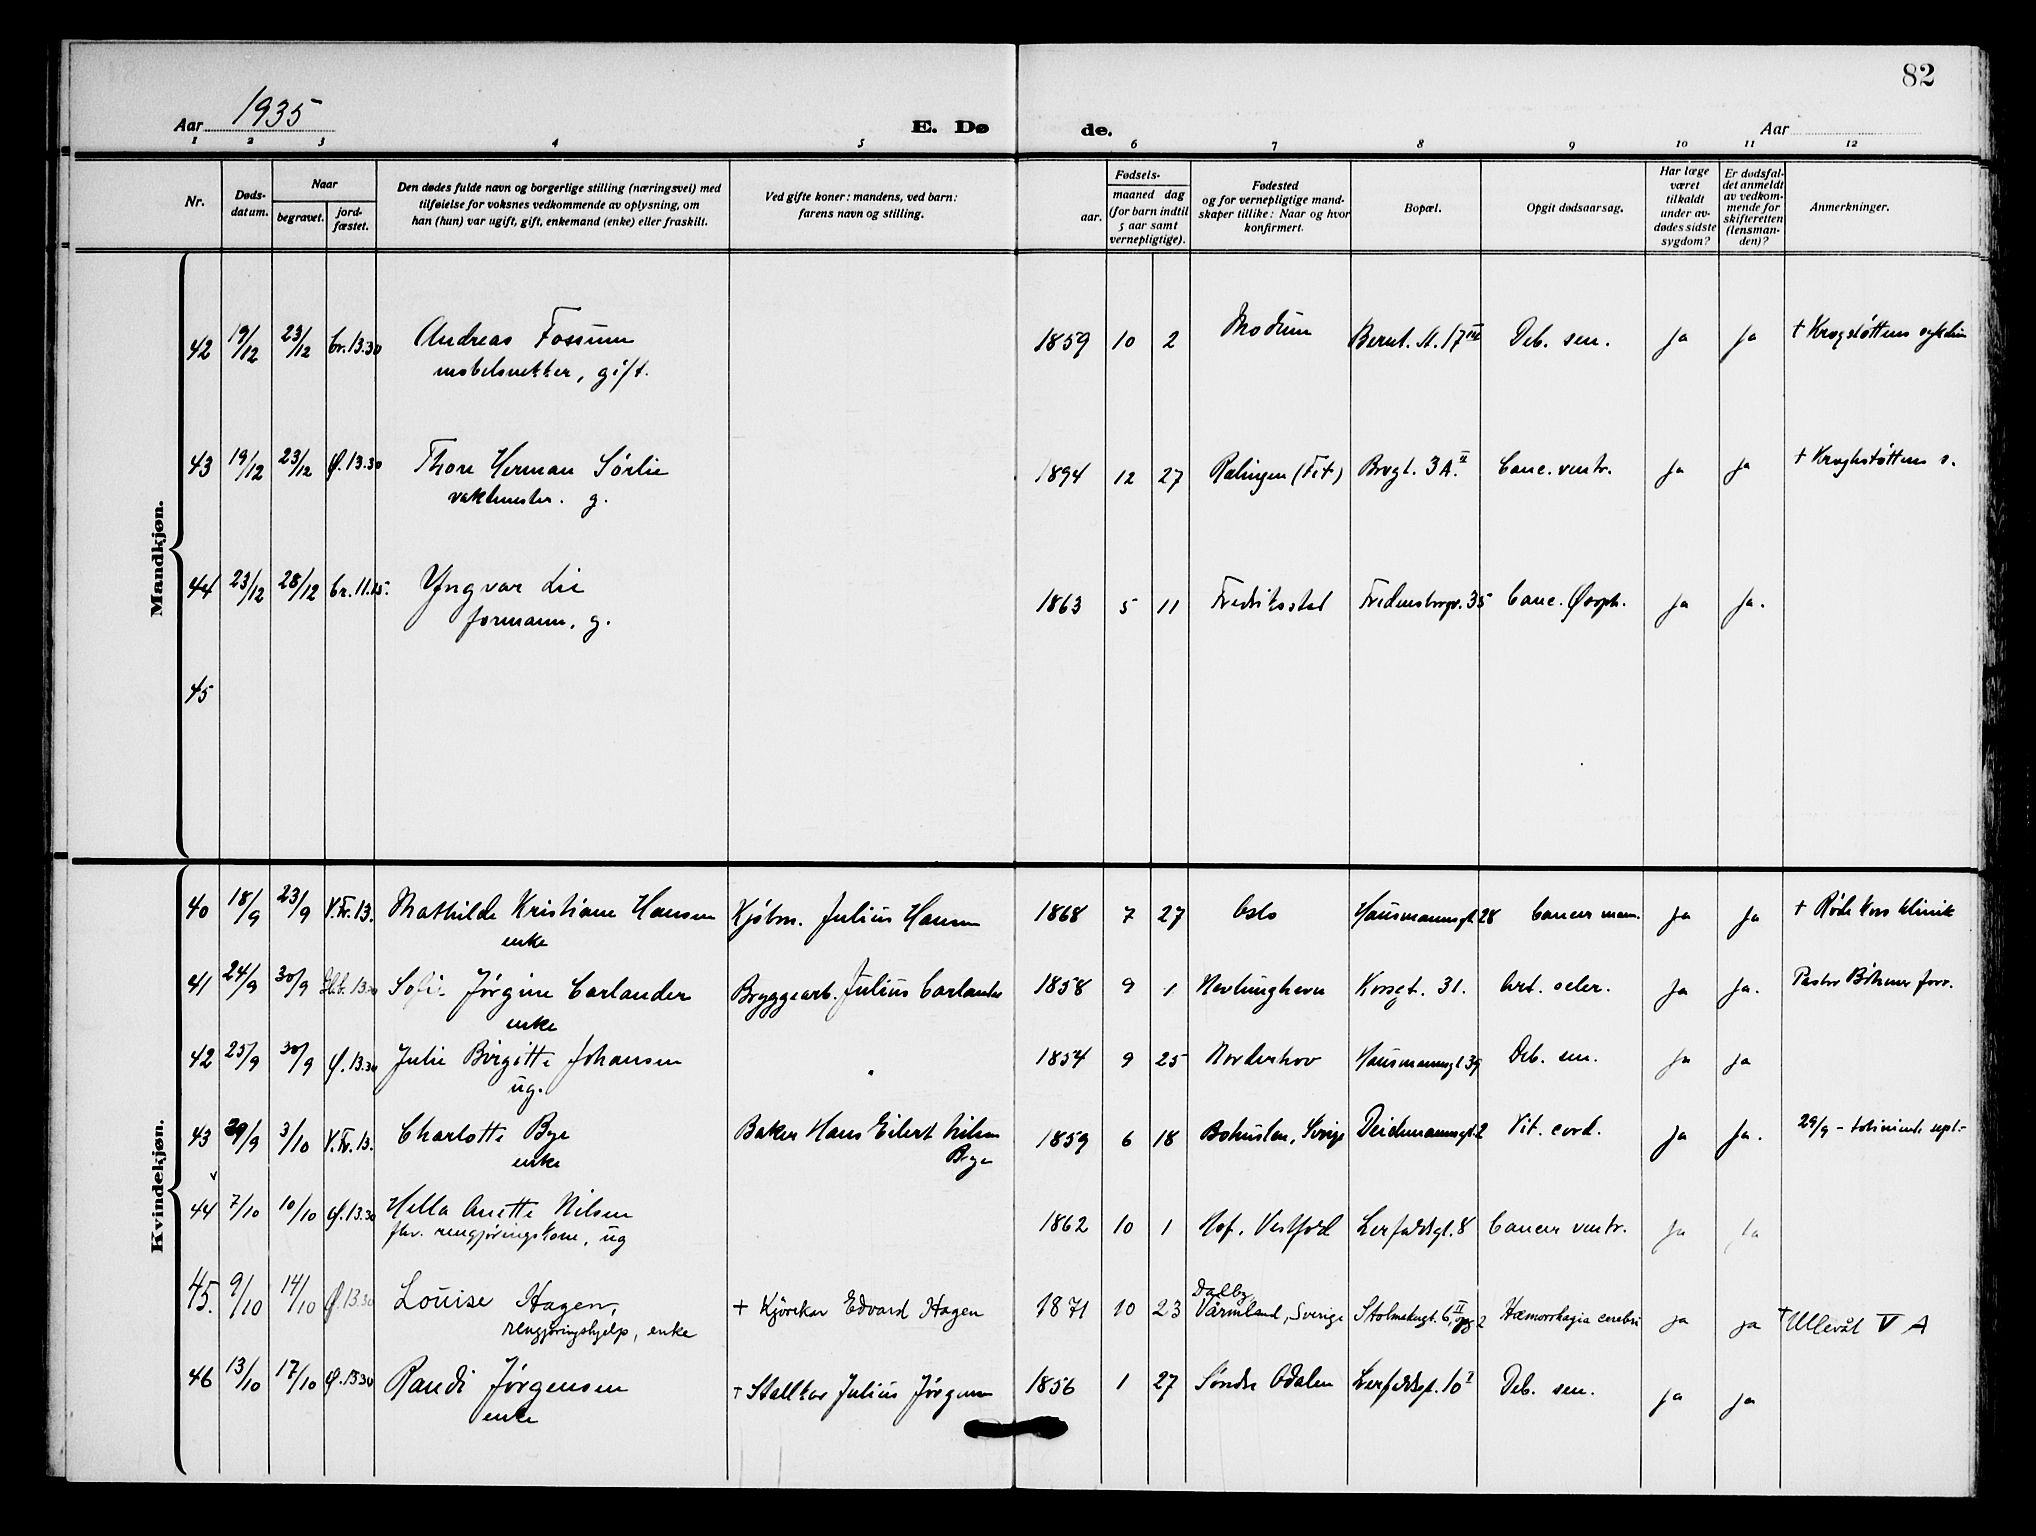 82
Aar 1935
E. Dø de.
Aar
1 2 3 4 5 6 7 8 9 10 11 12
Nr.
Døds-
datum.
Naar
begravet.
jord-
fæstet.
Den dødes fulde navn og borgerlige stilling (næringsvei) med
tilføielse for voksnes vedkommende av oplysning, om
han (hun) var ugift, gift, enkemand (enke) eller fraskilt.
Ved gifte koner: mandens, ved barn:
farens navn og stilling.
Fødsels-
aar.
maaned dag
(for barn indtil
5 aar samt
vernepligtige).
Fødested
og for vernepligtige mand-
skaper tillike: Naar og hvor
konfirmert.
Bopæl.
Opgit dødsaarsag.
Har læge
været
tilkaldt
under av-
dødes sidste
sygdom?
Er dødsfal-
det anmeldt
av vedkom-
mende for
skifteretten
(lensman-
den)?
Anmerkninger.
Mandkjøn.
42 19/12 23/12 Cr. 13.30 Andreas Fossum 1859 10 2 Modum Bernt. st. 17 Deb. sen. ja ja + Krogstøttens
gift.
43 19/12 23/12 Ø. 13.30 Thore Herman Sørlie 1894 12 27 Rælingen (Fet) Brogt. 3 A. II Canc. ventr. ja ja + Kroghstøttens s.
vaktmester. g.
44 23/12 28/12 Cr. 11.15. Yngvar Lie 1863 5 11 Fredriksstad Fredensborgv. 35 Canc. ja ja.
formann, g.
45
Kvindekjøn.
40 18/9 23/9 V.Fr. 13. Mathilde Kristiane Hansen Kjøbm. Julius Hansen 1868 7 27 Oslo Hausmannsgt. 28 Cancer mam. ja ja + Røde Kors klinik
enke
41 24/9 30/9 Sofie Jørgine Carlander Bryggearb. Julius Carlander 1858 9 1 Nevlunghavn Korsgt. 31. Art. scler. ja ja. Pastor Böhmer forr.
enke
42 25/9 30/9 Ø. 13.30 Julie Birgitte Johansen 1854 9 25 Norderhov Hausmannsgt 39 Deb. sen. ja ja
ug.
43 29/9 3/10 V.Fr. 13. Charlotte Bye Baker Hans Eilert Nilsen 1859 6 18 Bohuslen, Sverige Deichmannsgt. 2 Vit. cord. ja ja. 29/9 - sept.-
enke Bye
44 7/10 10/10 Ø. 13.30 Anette Nilsen 1862 10 1 Hof, Vestfold Lerfaldsgt. 8 Cancer ventr. ja ja
fhv. rengjøringskone, ug
45. 9/10 14/10 Ø. 13.30 Louise Hagen, + Kjørekar Edvard Hagen 1871 10 23 Dalby
Värmland, Sverige Stolmakergt. 6, II opg 2 Hæmorrhagia cerebri ja ja + Ullevål V A
rengjøringshjelp, enke
46 13/10 17/10 Ø. 13.30 Randi Jørgensen + Stallkar Julius Jørgensen 1856 1 27 Søndre Odalen Lerfaldsgt. 10 I Deb. sen. ja ja
enke